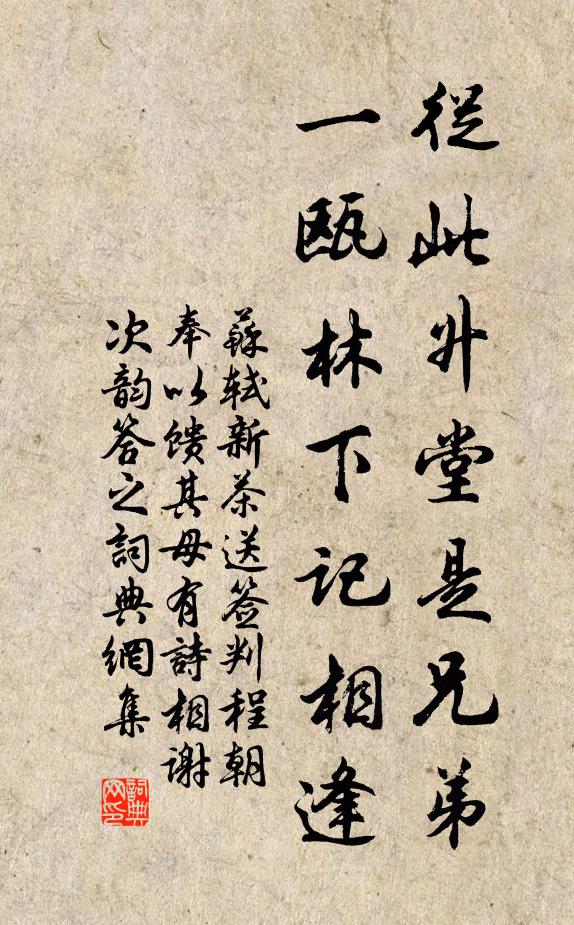 從此升堂是兄弟
一甌林下記相逢
蘇軾新茶送簽判程朝
奉以饋其母有詩相謝
次韵答之詞典網集
詞典網印